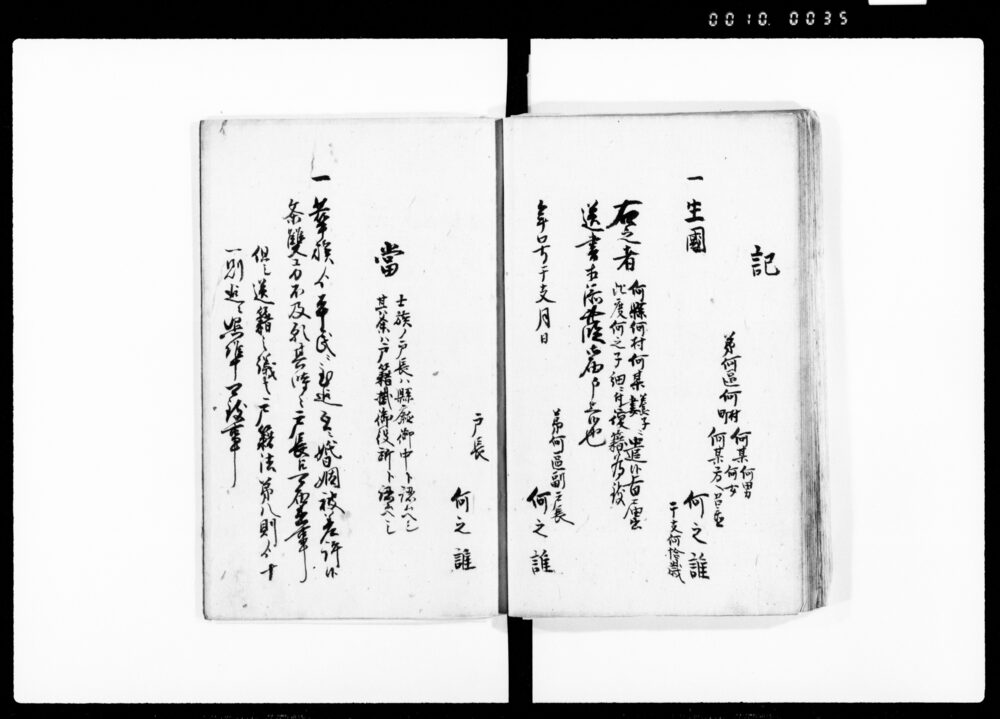 0010 0035
記
第何區何町村 何某何男
何女
何某方ヘ召連
一 生國 何之誰
干支何拾歳
右之者
何縣何村何某 養子 妻ニ遣候旨届出
此度何之子細ニ付復籍為致
送書相添此段御届申上候也
年号干支月日
第何區副戸長
何之誰
戸長
何之誰
當
士族ノ戸長ハ縣廰御中ト認ムヘシ
其余ハ戸籍掛御役所ト認ムヘシ
一 華族ゟ平民ニ至迄互ニ婚姻被差許候
条雙方不及願其時々戸長ヘ可届出事
但送籍之儀ハ戸籍法第八則ゟ十
一則迄ニ照準可致事